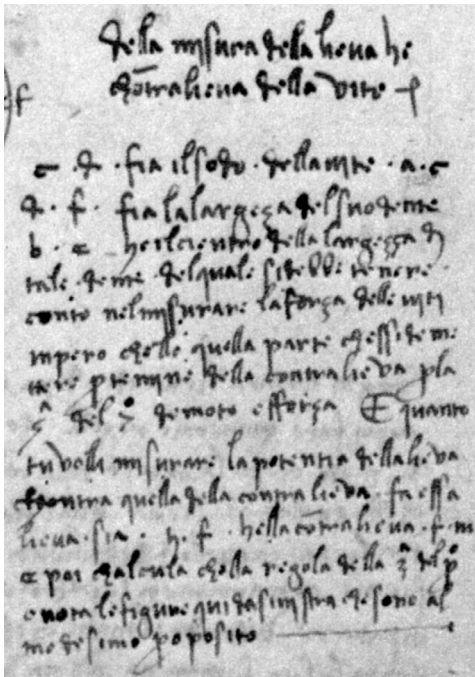 della misura della lieva he
chōtralieva della vite
f
c · d · fia il sodo · della vite · a · c
d · f · fia la largeça del suo dente
b · e · he il cientro della largeçça d
tale dente del quale si debbe tenere
conto nel missurare la força delle viti
impero chelle quella parte chessi de me
ttere p termine della contralieva p la
del de moto e fforça E quanto
tu volli misurare la potentia della lieva
chontra quella della contralieva · fa essa
lieva · sia · n · f · he lla cōtralieva · f · m
e poi chalcula cholla regola della del
e nota le figure qui da sinistra che sono al
medesimo poposito